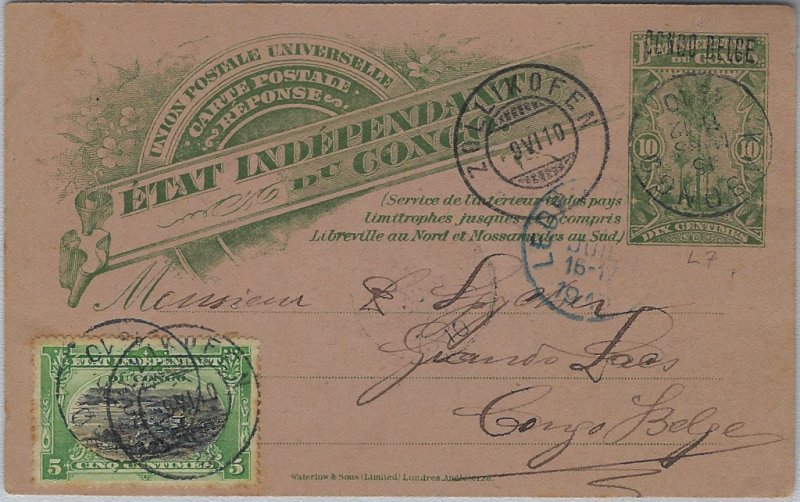 UNION POSTALE UNIVERSELLE
CARTE POSTALE
RÉPONSE
ÉTAT INDÉPENDANT
DU CONGO
CONGO BELGE
10 10
DIX CENTIMES
ZOLLIKOFEN
9 VI 10
(Service de l'intérieur et des pays
limitrophes jusques et y compris
Libreville au Nord et Mossamedes au Sud.)
L7
Monsieur
Grands Lacs
Congo Belge
ETAT INDEPENDANT
DU CONGO
5 CINQ CENTIMES 5
Waterlow & Sons (Limited) Londres, Angleterre.